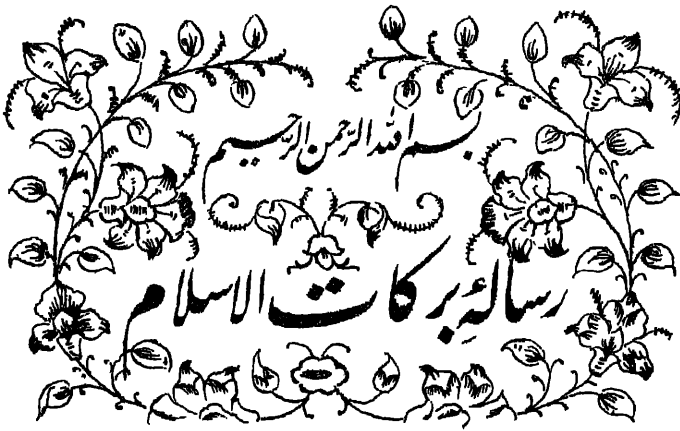 بسم الله الرحمن الرحيم
رسالۂ بركات الاسلام